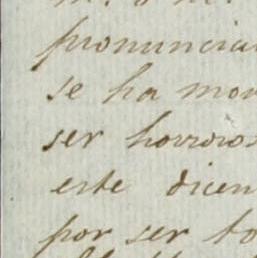 pronuncia
se ha mo
ser horroro
este dicen
por ser to